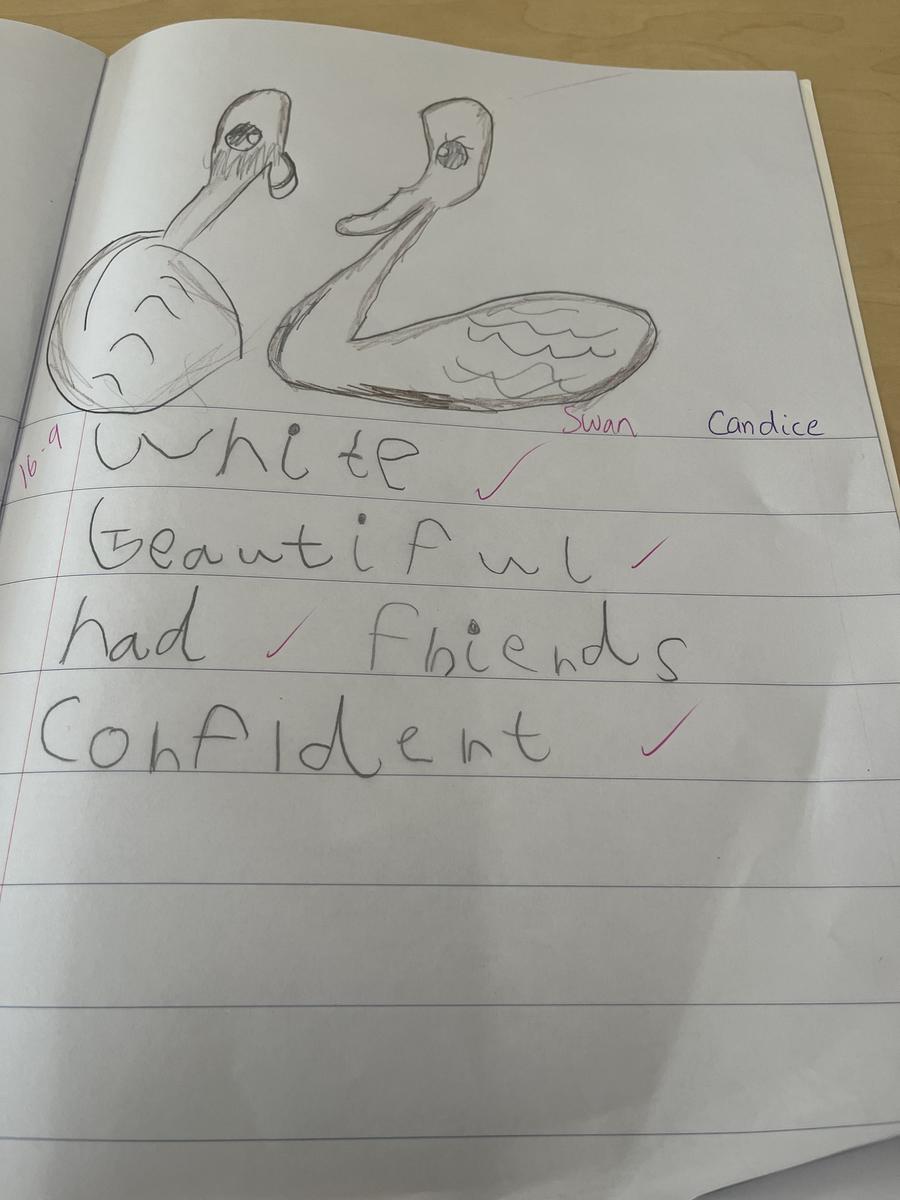 Swan Candice
16.9 White
Beautiful
had friends
Confident